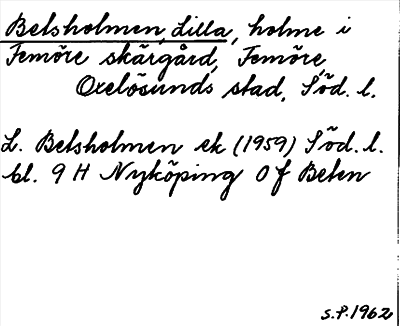 Betsholmen, Lilla, holme i
Femöre skärgård, Femöre
Oxelösunds stad, Söd. l.
L. Betsholmen ek (1959) Söd. l.
bl. 9 H Nyköping Of Beten
S.P. 1962